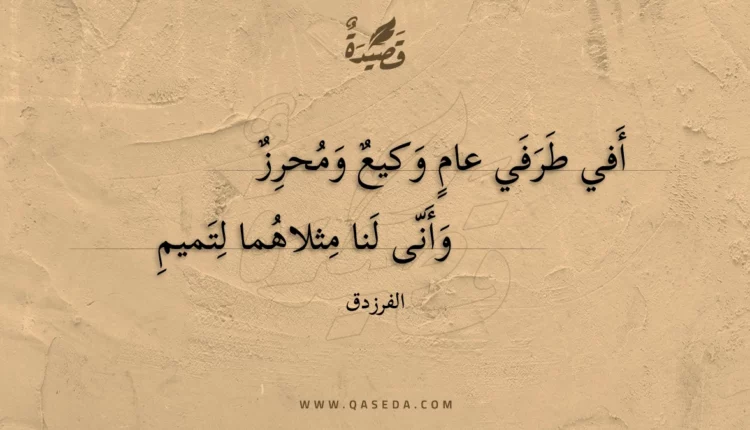 قَصِيدَةٌ
أَفي طَرَفَي عامٍ وَكيعٌ وَمُحرِزٌ
وَأَنّى لَنا مِثلاهُما لِتَميمِ
الفرزدق
WWW.QASEDA.COM